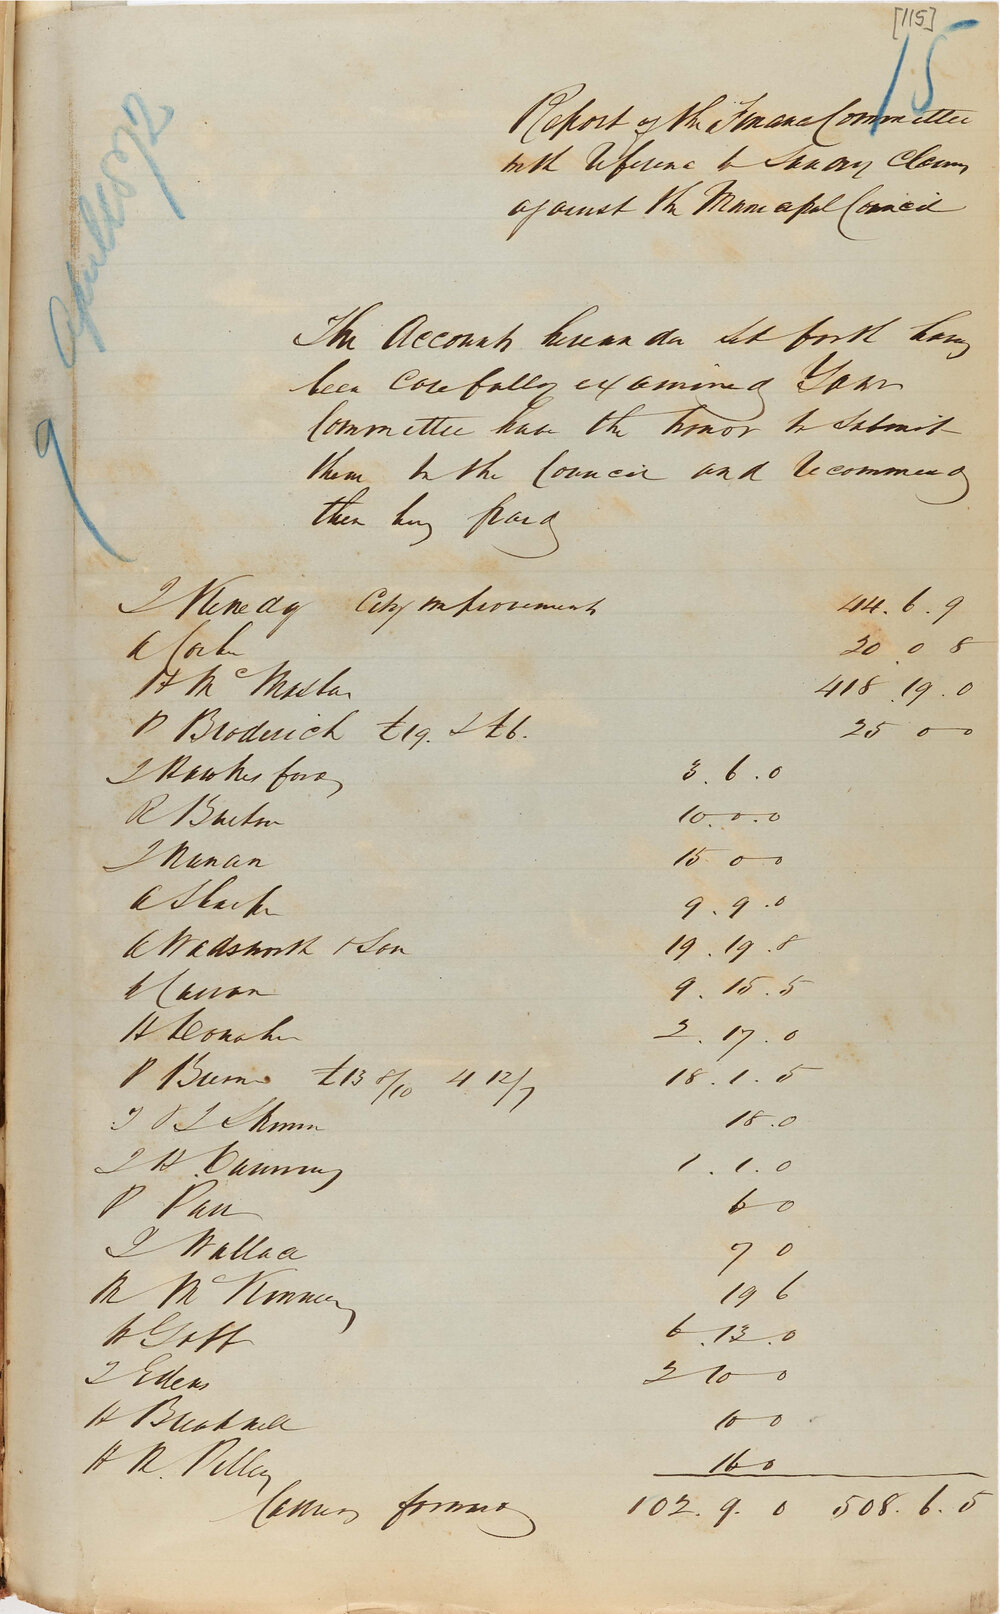 [115]
15
9 April 1872
Report of the Finance Committee
with reference to Sundry Claims
against the Municipal Council
The Accounts hereunder set forth having
been carefully examined Your
Committee have the honor to submit
them to the Council and recommend
their being paid
J Kenedy City Improvements 44. 6. 9
20. 0 8
H McMaster 418. 19. 0
P Broderick £19. & £6. 25 0 0
J Hawkesford 3. 6. 0
R Burton 10. 0. 0
J Hanan 15 0 0
A Sharp 9. 9. 0
A Wadsworth & Son 19. 19. 8
W Curran 9. 15. 5
H Donaher 2. 17. 0
P Burn £13 8/10 4 12/7 18. 1. 5
18. 0
1. 1. 0
P Parr 6 0
J Wallace 7 0
M McKinney 19 6
W Goff 6. 13. 0
J Edens 2 10 0
H Breadnell 10 0
H R. Pilley 16 0
Carried forward 102. 9. 0 508. 6. 5